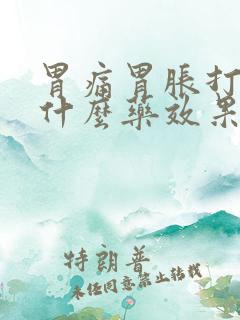 胃痛胃胀打
什麼藥效果
特朗普
未经同意禁止转载